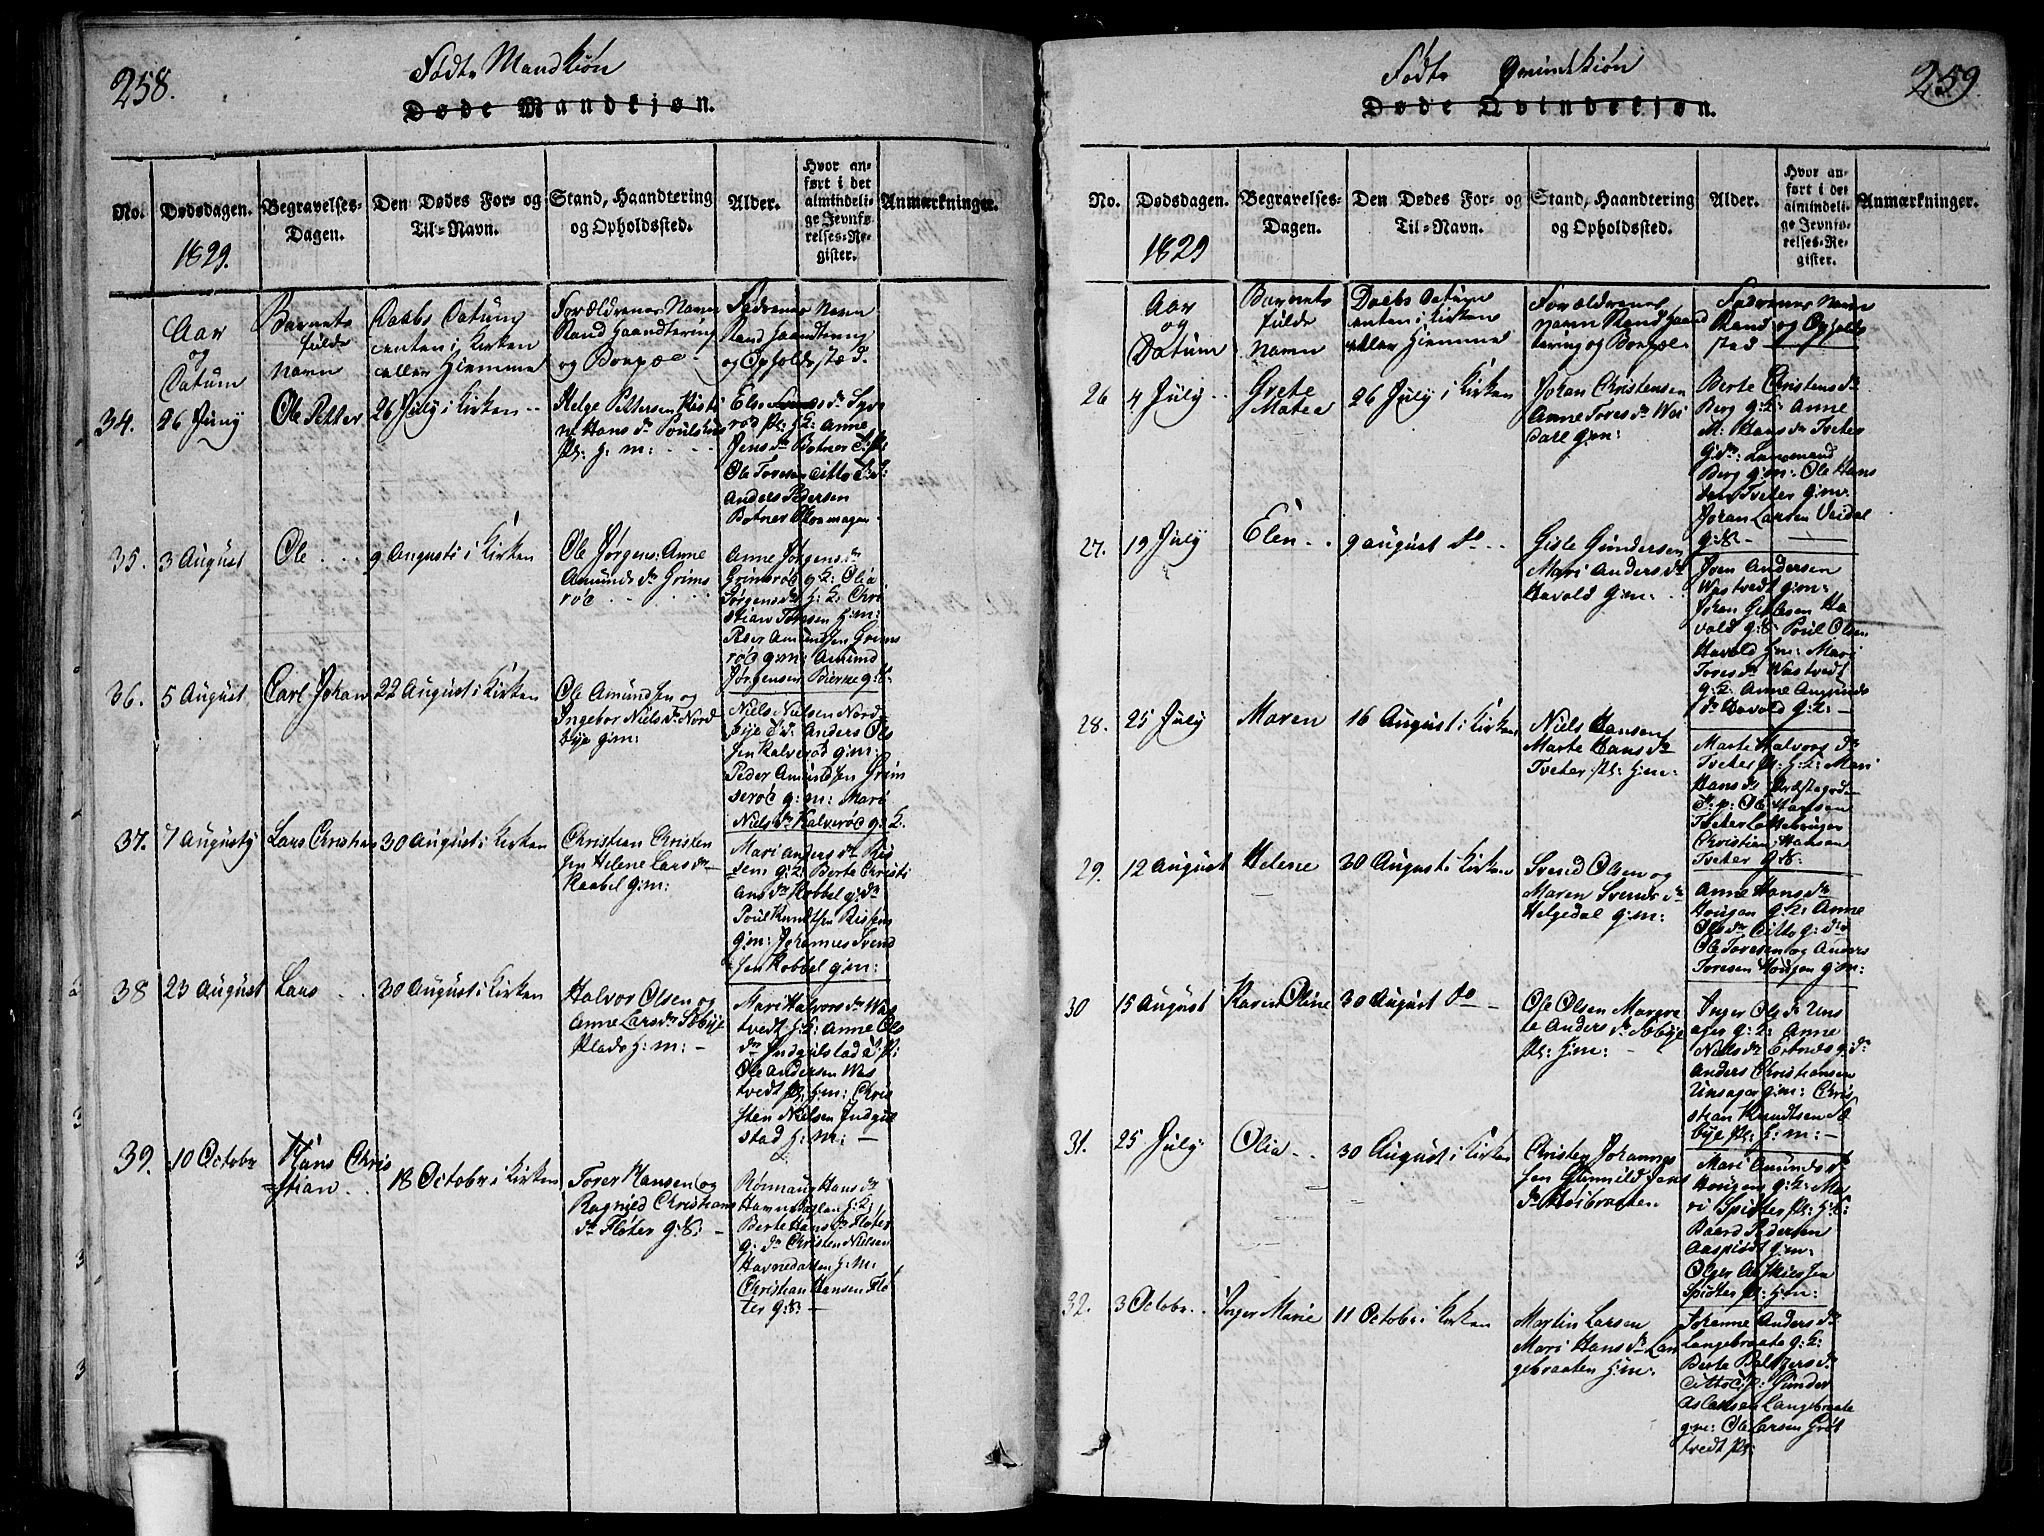 258.
Fødte Mandkiøn
Døde Mandkjøn.
No.
Dødsdagen.
1829.
Begravelses-
Dagen.
Den Dødes For- og
Til-Navn.
Stand, Haandtering
og Opholdssted.
Alder.
Hvor an-
ført i det
almindeli-
ge Jevnfø-
relses-Re-
gister.
Anmærkninger.
Aar
og
Datum
Barnets
fulde
Navn
Daabs Datum
enten i Kirken
eller Hiemme
Forældrenes Navn
Stand Haandtering
og Boepæl
Faddernes Navn
Stand Haandtering
og Opholdssted.
34.
26 Juny
Ole Petter
26 July i Kirken
Helge Pettersen Kisti
ne Hans dr
Pl: g: m:
rød Pl: g:k: Anne
Jens dr Botner
Ole Toresen ditto
Anders Pedersen
Botner
35.
3 August
Ole
9 August i Kirken
Ole Jørgens: Anne
Amunds dr Grims
rød
Anne Jørgens dr
Grimsrød g:k: Olia
Jørgens dr g:k: Chri
stian Toresen g:m:
Peder Amundsen Grims
rød g:m: Amund
Jørgensen Bierne g:k:
36.
5 August
Carl Johan
22 August i Kirken
Ole Amundsen og
Ingebor Niels dr Nord
bye g:m:
Niels Nielsen Nord
bye Anders Ols
sen Kalverød g:m:
Peder Amundsen Grim
serød g:m: Mari
Niels dr Kalverød g:k:
37.
7 Augusty
Lars Christian
30 August i Kirken
Christian Christen
sen Helene Lars dr
Kaabel g:m:
Mari Anders dr Ris
sem g:k: Berte Christi
ans dr Kobbel g:dr
Poul Knudtsen Rissem
g:m: Johannes Svend
sen Kobbel g:m:
38
23 August
Lars
30 August i Kirken
Halvor Olsen og
Anne Lars dr Søbye
Plads g:m:
Mari Halvors dr Was
tvedt g:k: Anne Ols
dr Indgulstad
Ole Andersen Was
tvedt pl: g:m: Chris
sten Nielsen Indgul
stad g:m:
39.
10 Octobr
Hans Chris
stian
18 Octobr i Kirken
Torer Hansen og
Ragnild Christians
dr Fløter g:k:
Rønnaug Hans dr
Havnedalen g:k:
Berte Hans dr Fløter
g: dr Christen Nielsen
Havnedalen g:m:
Christian Hansen Flø
ter g:k:
259
Fødte Qvindekiøn
Døde Qvindekjøn.
No.
Dødsdagen.
1829
Begravelses-
Dagen.
Den Dødes For- og
Til-Navn.
Stand, Haandtering
og Opholdssted.
Alder.
Hvor an-
ført i det
almindeli-
ge Jevnfø-
relses-Re-
gister.
Anmærkninger.
Aar
og
Datum
Barnets
fulde
Navn
Daabs Datum
enten i Kirken
eller Hiemme
Forældrenes
Navn Stand Haand
tering og Boepæl
Faddernes Navn
Stand og Ophold
sted
26
4 July
Grete
Matea
26 July i Kirken
Johan Christensen
Anne Tores dr Wei
dal g:m:
Berte Christens dr
Berg g:k: Anne
M: Hans dr Tveter
g:dr:
Berg g:m: Ole Hans
sen Tveter g:m:
Johan Larsen Veidal
g:k:
27.
19 July
Elen
9 August do
Gisle Gundersen
Mari Anders dr
Havold g:m:
Joen Andersen
Wastvedt g:m:
Johan Gislesen Ha
vold g:k: Poul Olsen
Havold g:m: Mari
Tores dr Wastvedt
g:k: Anne Amunds
dr Havold g:k:
28.
25 July
Maren
16 August i Kirken
Niels Hansen
Marte Hans dr
Tveter pl: g:m:
Marte Halvors dr
Tveter pl: g:k: Mari
Hans dr
Ole Hansen
Tveter
Christian Hansen
Tveter g:k:
29.
12 August
Helene
30 August i Kirken
Svend Olsen og
Maren Svends dr
Helgedal g:m:
Anne Hans dr
Hougen g:k: Anne
Ols dr ditto g: dr
Ole Toresen og Anders
Toresen Hougen g:m:
30
15 August
Karen Oline
30 August do
Ole Olsen Margre
te Anders dr Søbye
pl: g:m:
Inger Ols dr Uns
ager g:k: Anne
Niels dr Eitnes g: dr
Anders Christiansen
Unsager g:m: Chris
stian Knudtsen Sø
bye pl: g:m:
31.
25 July
Olia
30 August i Kirken
Christen Johannes
sen Gunnild Jens
dr Høibraaten
Mari Amunds dr
Hougen g:k: Ma
ri Spidter pl: g:k:
Baard Pedersen
g:m:
Spidter pl: g:m:
32.
3 Octobr
Inger Marie
11 Octobr i Kirken
Martin Larsen
Mari Hans dr Lan
gebraaten g:m:
Johanne Anders dr
Langebraate g:k:
Berte
ditto Gunder
Aslaksen Langebraate
g:m: Ole Larsen Grøt
vedt pl: